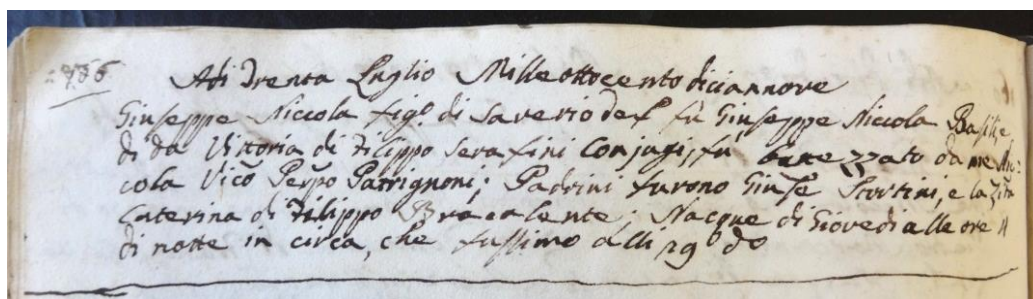 Adi Trenta Luglio Mille ottocento diciannove
Giuseppe Niccola figo. di Saverio del fù Giuseppe Niccola
di da Vittoria di Filippo Serafini Conjugi, fù battezzato da me Nic
cola Vico Perpo Patrignoni; Padrini furono Giuse Scortini, e la Zita
Caterina di Filippo Bracalente; Nacque di Giovedi alle ore 11
di notte in circa, che fussimo alli 29 do